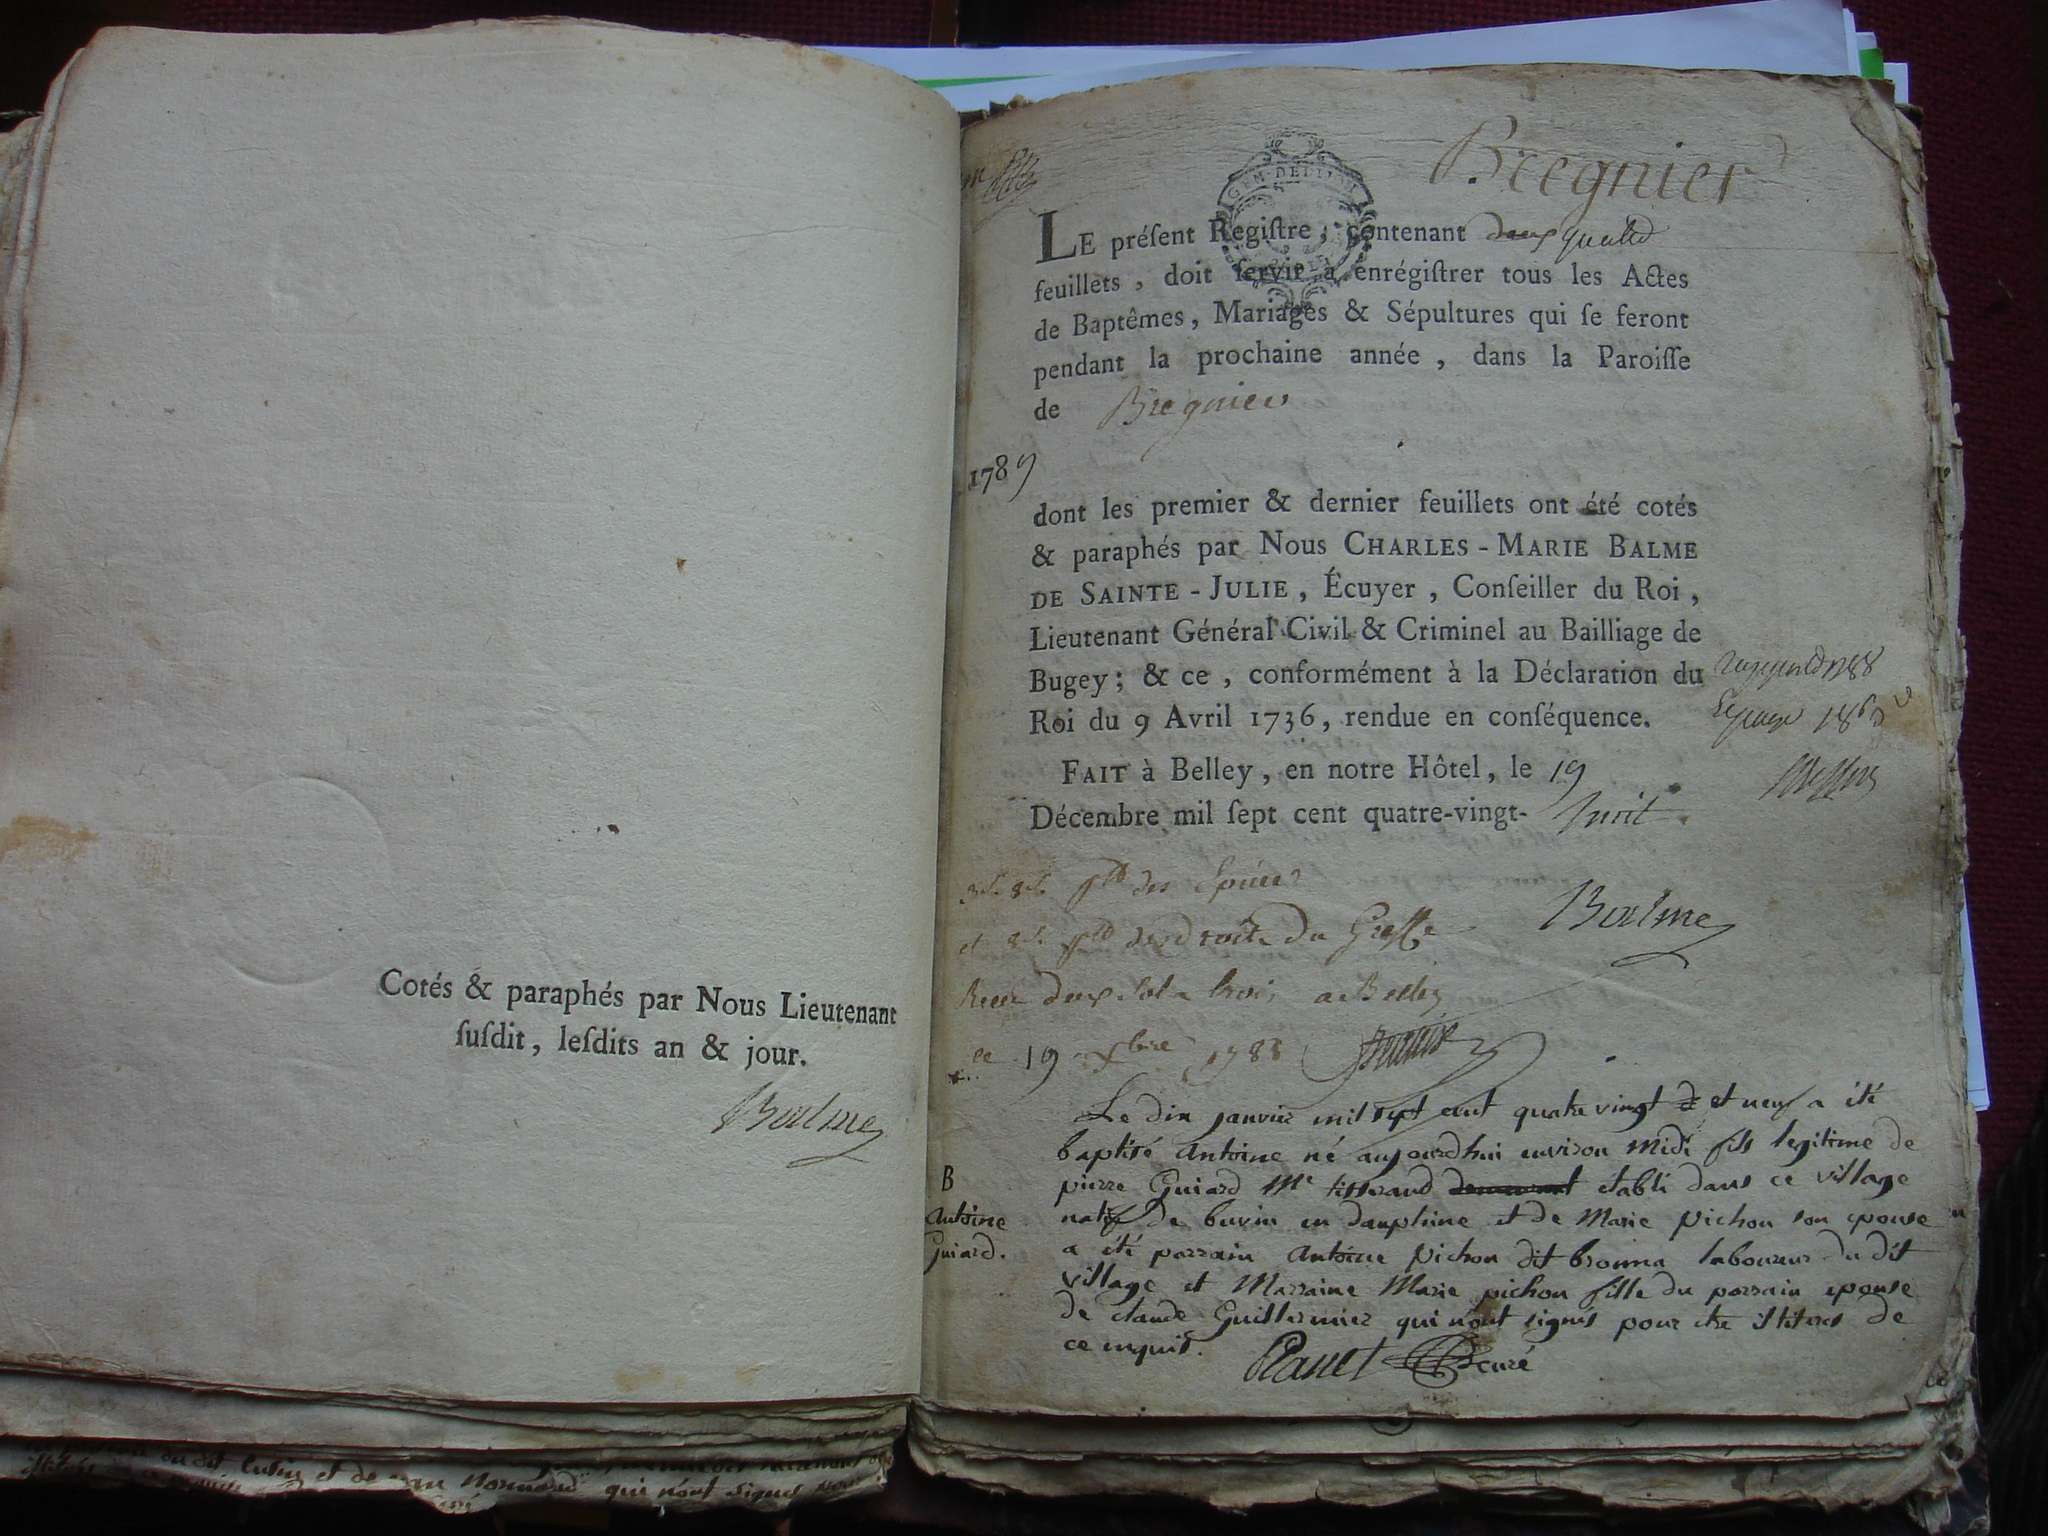 Cotés & paraphés par Nous Lieutenant
ſuſdit, leſdits an & jour.
Balme
Bregnier
GEN. DE DIJON
LE préſent Regiſtre, contenant deux
feuillets, doit ſervir à enrégiſtrer tous les Actes
de Baptêmes, Mariages & Sépultures qui ſe feront
pendant la prochaine année, dans la Paroiſſe
de Bregnier
1789
dont les premier & dernier feuillets ont été cotés
& paraphés par Nous CHARLES-MARIE BALME
DE SAINTE-JULIE, Écuyer, Conſeiller du Roi,
Lieutenant Général Civil & Criminel au Bailliage de
Bugey; & ce, conformément à la Déclaration du
Roi du 9 Avril 1736, rendue en conſéquence.
FAIT à Belley, en notre Hôtel, le 19
Décembre mil ſept cent quatre-vingt- huit
des Epices
Balme
et des droits du Greffe
a Belley
ce 19 Xbre 1788
Le dix janvier mil sept cent quatre vingt et neuf a été
baptisé Antoine né aujourdhui environ midi fils legitime de
pierre Guiard Me tisserand établi dans ce village
natif de buvin en dauphine et de Marie pichon son epouse
a été parrain Antoine pichon dit bronna laboureur du dit
village et Marraine Marie pichon fille du parrain epouse
de claude Guillermier qui n'ont signés pour etre illiteres de
ce enquis.
B
Antoine
Guiard.
Planet curé
du dit et de qui n'ont signés pour